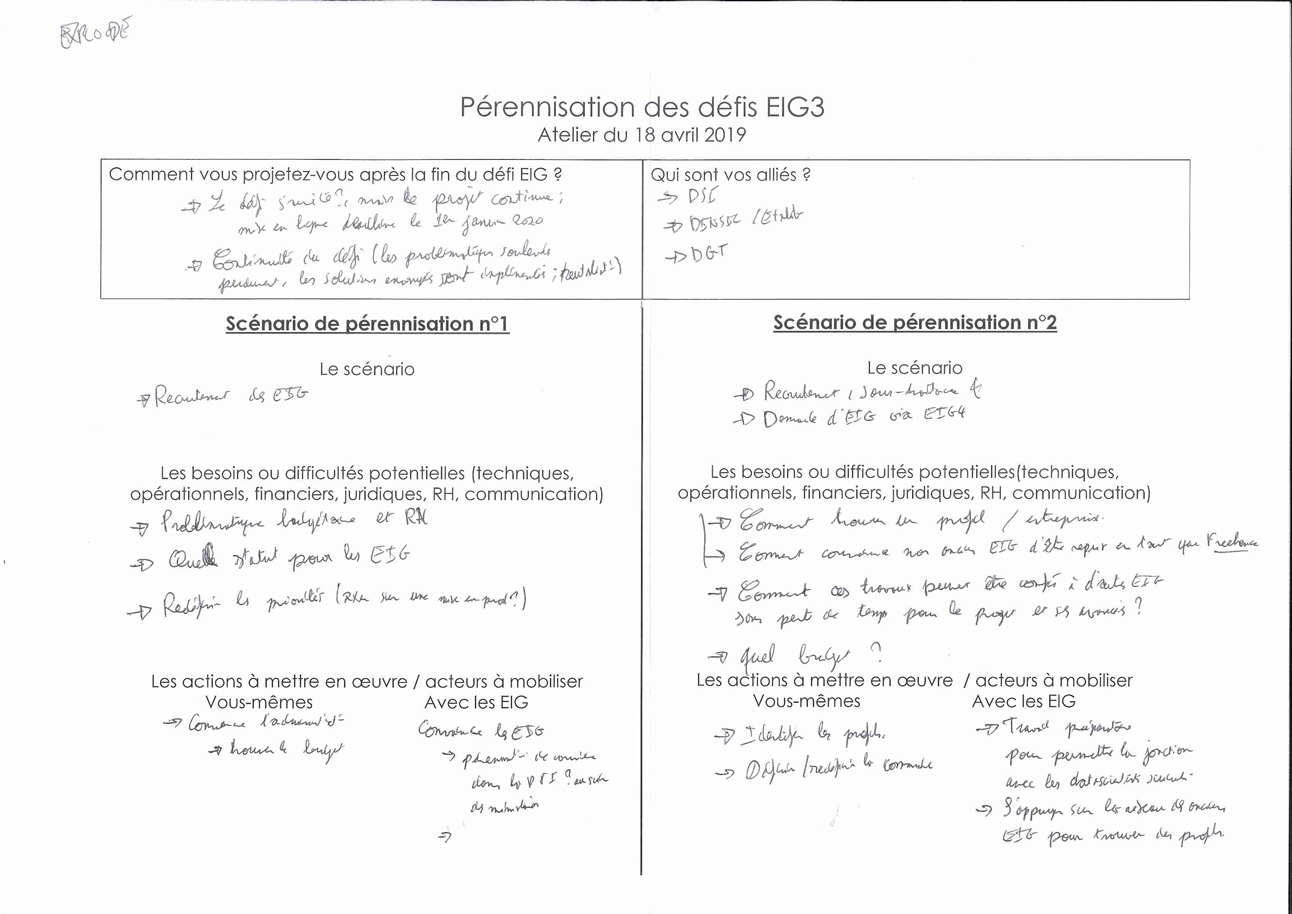 EXPLO CODE
Pérennisation des défis EIG3
Atelier du 18 avril 2019
Comment vous projetez-vous après la fin du défi EIG ?
→ Le défi mais le projet continue ;
mise en ligne le 1er janvier 2020
→ Continuité du défi (les problématiques soulevées
les solutions sont
Qui sont vos alliés ?
→ DSI
→ DINSIC / Etalab
→ DGT
Scénario de pérennisation n°1
Le scénario
→ Recrutement des EIG
Les besoins ou difficultés potentielles (techniques,
opérationnels, financiers, juridiques, RH, communication)
→ Problématique budgétaire et RH
→ Quel statut pour les EIG
→ Redéfinir les priorités ( sur une mise en prod ?)
Les actions à mettre en œuvre / acteurs à mobiliser
Vous-mêmes
→ Convaincre
→ trouver le budget
Avec les EIG
Convaincre les EIG
→ de carrière
dans les ? au sein
des ministères
→
Scénario de pérennisation n°2
Le scénario
→ Recrutement / sous-traitance
→ Demande d'EIG via EIG4
Les besoins ou difficultés potentielles(techniques,
opérationnels, financiers, juridiques, RH, communication)
→ Comment trouver un profil / entreprise.
→ Comment convaincre nos anciens EIG d'être repris en tant que Freelance
→ Comment ces travaux peuvent être confiés à d'autres EIG
sans perte de temps pour le projet et ses avancées ?
→ quel budget ?
Les actions à mettre en œuvre / acteurs à mobiliser
Vous-mêmes
→ Identifier les profils.
→ Définir / redéfinir la commande
Avec les EIG
→ Travail préparatoire
pour permettre la jonction
avec les datascientists
→ S'appuyer sur les réseaux des anciens
EIG pour trouver des profils